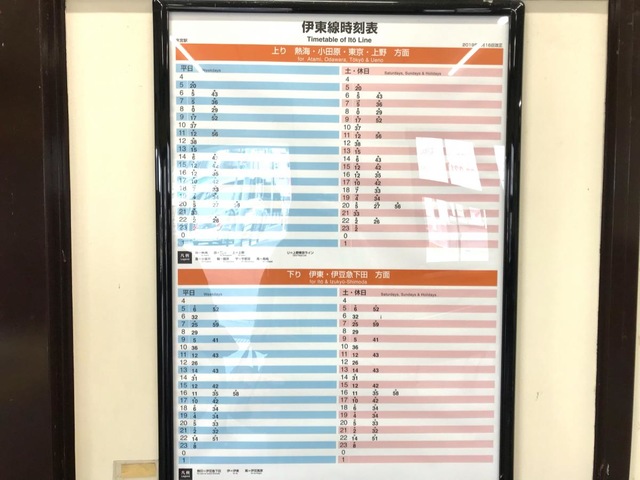 伊東線時刻表
Timetable of Itō Line
上り 熱海・小田原・東京・上野 方面
for Atami, Odawara, Tōkyō & Ueno
平日 Weekdays
4
5 20
6 5 43
7 5 36
8 0 29
9 17 52
10 37
11 12 56
12 38
13 15
14 6 43
15
16 12 35
17 10 42
18
19
20
21
22
23
0
1
土・休日 Saturdays, Sundays & Holidays
4
5 20
6 5 43
7 5 36
8 0 29
9 17 52
10 37
11 12 56
12 38
13 15
14 6 43
15 12 42
16 12 35
17 10 42
18 7 33
19 4 34
20 5 27 58
21 33
22 2 26
23 2
0
1
凡例
下り 伊東・伊豆急下田 方面
for Itō & Izukyū-Shimoda
平日 Weekdays
4
5 6 52
6 32
7 25 59
8 29
9 5 41
10 36
11 12 43
12 26
13 14 43
14 31
15 12 42
16 11 35 58
17 10 42
18 6 34
19 4 34
20 5 33
21 2 32
22 14 51
23 8
0
1
土・休日 Saturdays, Sundays & Holidays
4
5 6 52
6 32
7 25 59
8 29
9 5 41
10 36
11 12 43
12 26
13 14 43
14 31
15 12 42
16 11 35 58
17 10 42
18 6 34
19 4 34
20 5 33
21 2 32
22 14 51
23 8
0
1
凡例